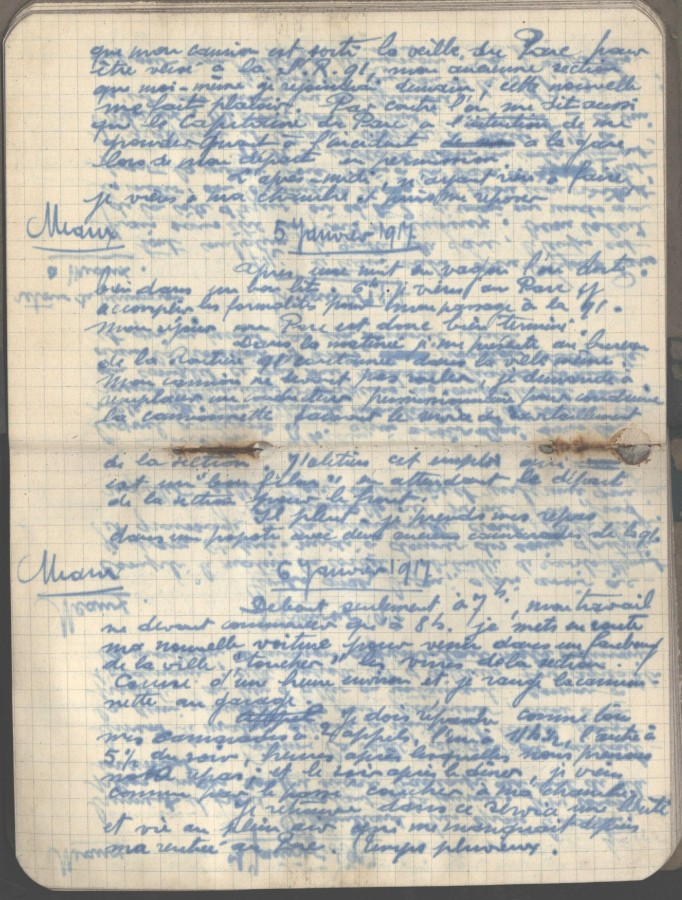 que mon camion est sorti la veille du Parc pour
être versé à la S.R. 91, mon ancienne section
que moi-même je rejoindrai demain, cette nouvelle
me fait plaisir. Par contre l'on me dit aussi
que le Capitaine du Parc a l'intention de me
quant à l'incident à la gare
lors de mon départ en permission.
L'après-midi, n'ayant rien à faire
je viens à ma chambre et puis me reposer
Meaux 5 Janvier 1917
Après une nuit en wagon l'on dort
bien dans un bon lit. 6h, je viens au Parc y
accomplir les formalités pour mon passage à la 91.
Mon séjour au Parc est donc bien terminé.
Dans la matinée je me présente au bureau
de la Section 91 dans la ville même.
Mon camion ne devant pas rouler, je demande à
remplacer un conducteur permissionnaire pour conduire
la camionnette faisant le service de ravitaillement
de la section. J'obtiens cet emploi qui
est un "bon filon" en attendant le départ
de la section pour le front.
Il pleut. je prends mes repas
dans un popote avec deux anciens camarades de la 91.
Meaux 6 Janvier 1917
Debout seulement à 7h, mon travail
ne devant commencer qu'à 8h. je mets en route
ma nouvelle voiture pour venir dans un faubourg
de la ville "toucher" les vivres de la section.
Course d'une heure environ et je range la camion-
nette au garage.
Je dois répondre comme tous
mes camarades à 2 appels, l'un à 11h½, l'autre à
5h½ du soir, heures après lesquelles nous prenons
notre repas, et le soir après le dîner, je viens
comme par le passé coucher à ma chambre.
Je retrouve dans ce service une liberté
et vie au plein air qui me manquait depuis
ma rentrée au Parc. Temps pluvieux.